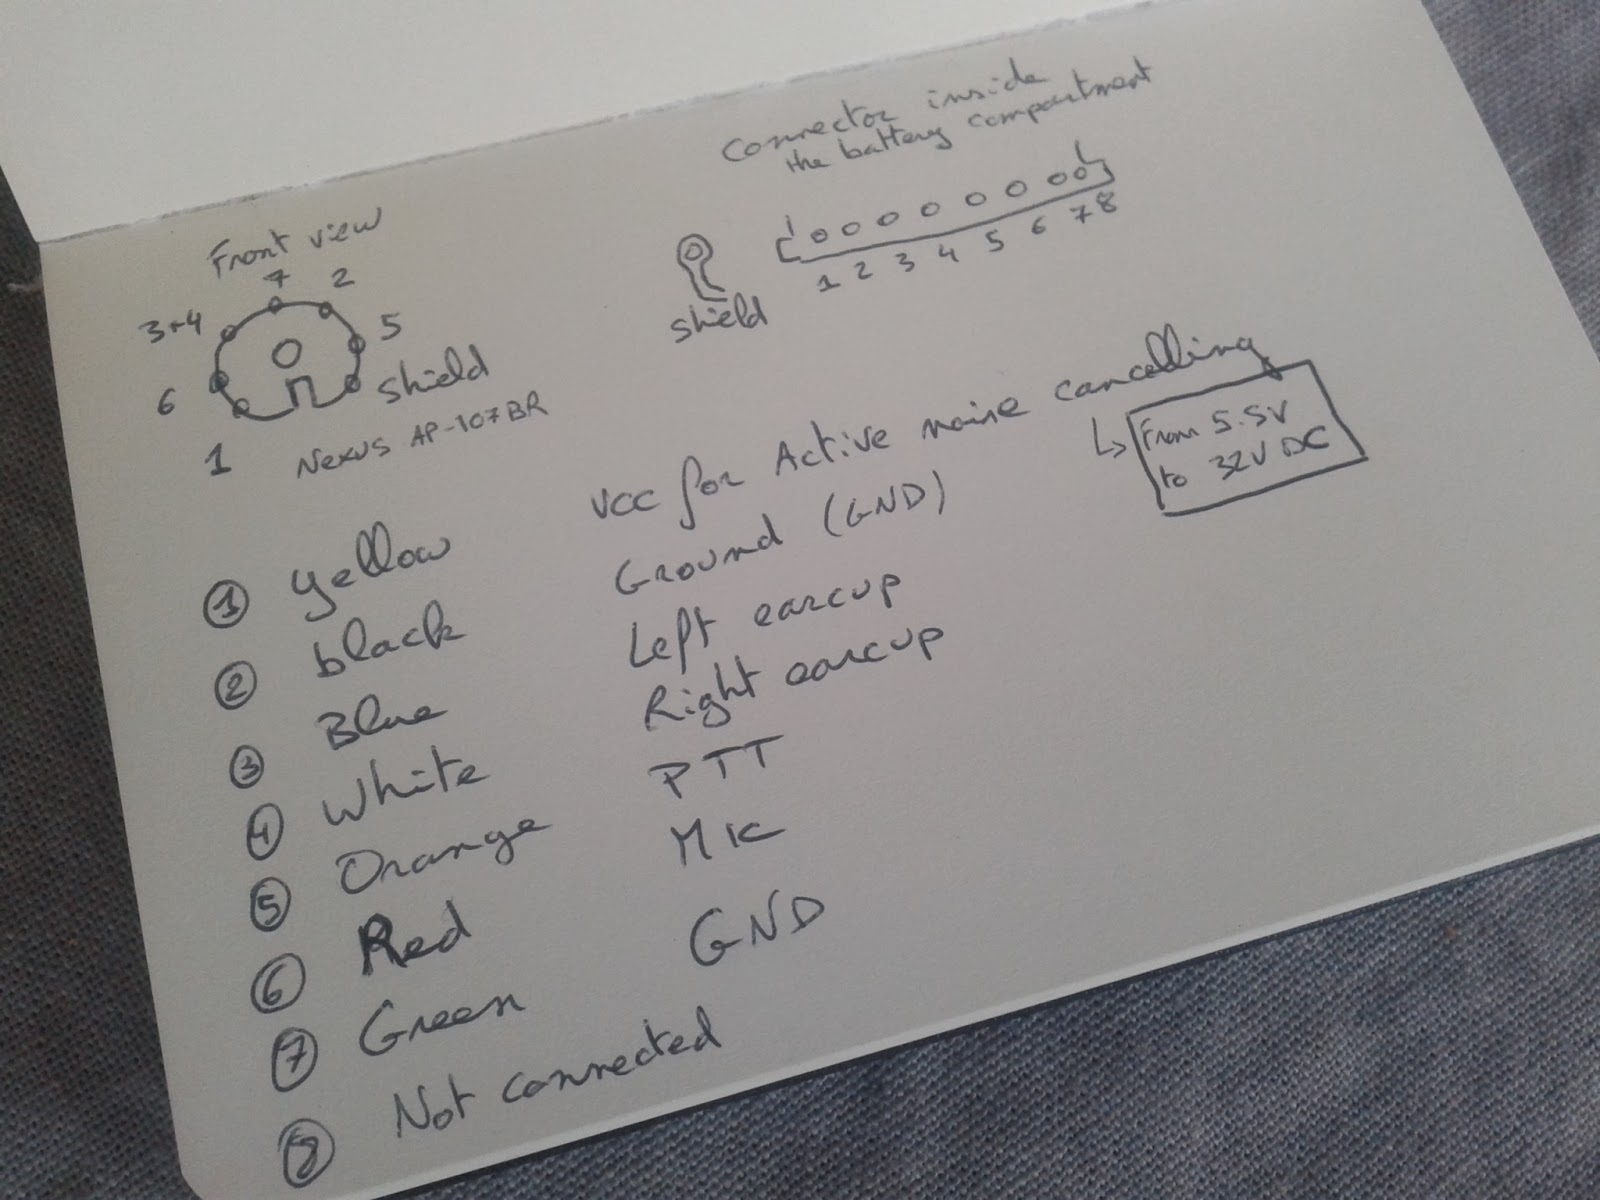 Connector inside
the battery compartment
1 2 3 4 5 6 7 8
shield
Front view
7 2
3+4 5
6 shield
1
Nexus AP-107BR
① yellow VCC for Active noise cancelling
↳ From 5.5V
to 32V DC
② black Ground (GND)
③ Blue Left earcup
④ White Right earcup
⑤ Orange PTT
⑥ Red MIC
⑦ Green GND
⑧ Not connected